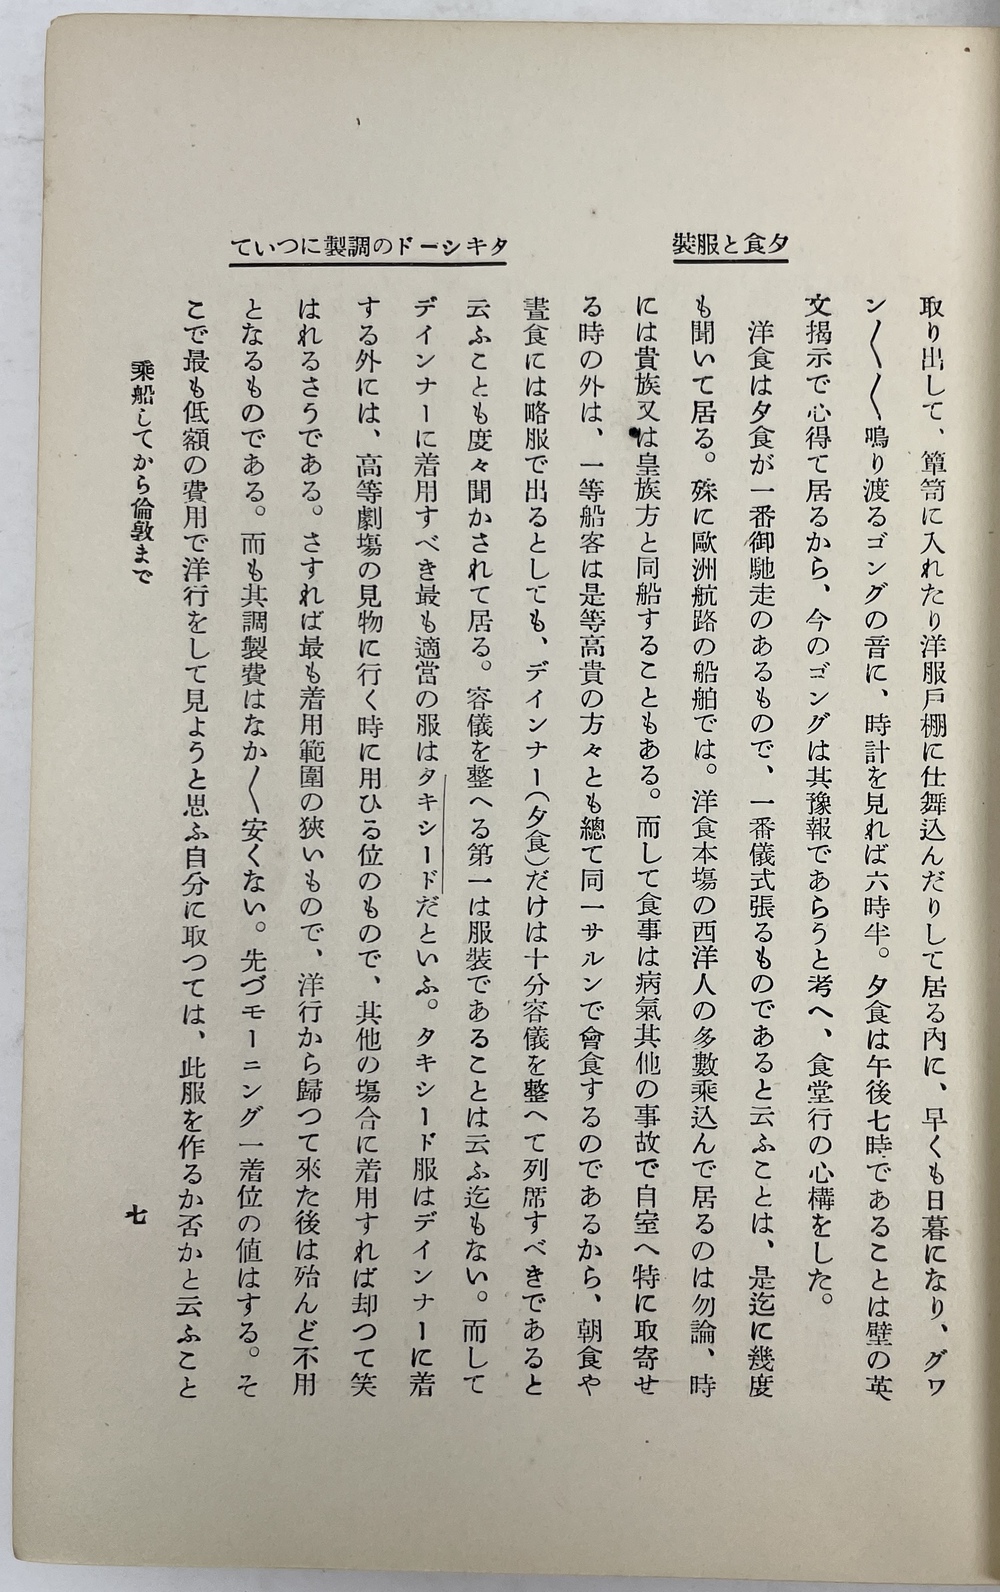 夕食と服裝
タキシードの調製について
取り出して、簞笥に入れたり洋服戶棚に仕舞込んだりして居る內に、早くも日暮になり、グワ
ン〱〱鳴り渡るゴングの音に、時計を見れば六時半。夕食は午後七時であることは壁の英
文揭示で心得て居るから、今のゴングは其豫報であらうと考へ、食堂行の心構をした。
洋食は夕食が一番御馳走のあるもので、一番儀式張るものであると云ふことは、是迄に幾度
も聞いて居る。殊に歐洲航路の船舶では。洋食本塲の西洋人の多數乘込んで居るのは勿論、時
には貴族又は皇族方と同船することもある。而して食事は病氣其他の事故で自室へ特に取寄せ
る時の外は、一等船客は是等高貴の方々とも總て同一サルンで會食するのであるから、朝食や
晝食には略服で出るとしても、デインナー(夕食)だけは十分容儀を整へて列席すべきであると
云ふことも度々聞かされて居る。容儀を整へる第一は服裝であることは云ふ迄もない。而して
デインナーに着用すべき最も適當の服はタキシードだといふ。タキシード服はデインナーに着
する外には、高等劇塲の見物に行く時に用ひる位のもので、其他の塲合に着用すれば却つて笑
はれるさうである。さすれば最も着用範圍の狹いもので、洋行から歸つて來た後は殆んど不用
となるものである。而も其調製費はなか〱安くない。先づモーニング一着位の値はする。そ
こで最も低額の費用で洋行をして見ようと思ふ自分に取つては、此服を作るか否かと云ふこと
乘船してから倫敦まで
七